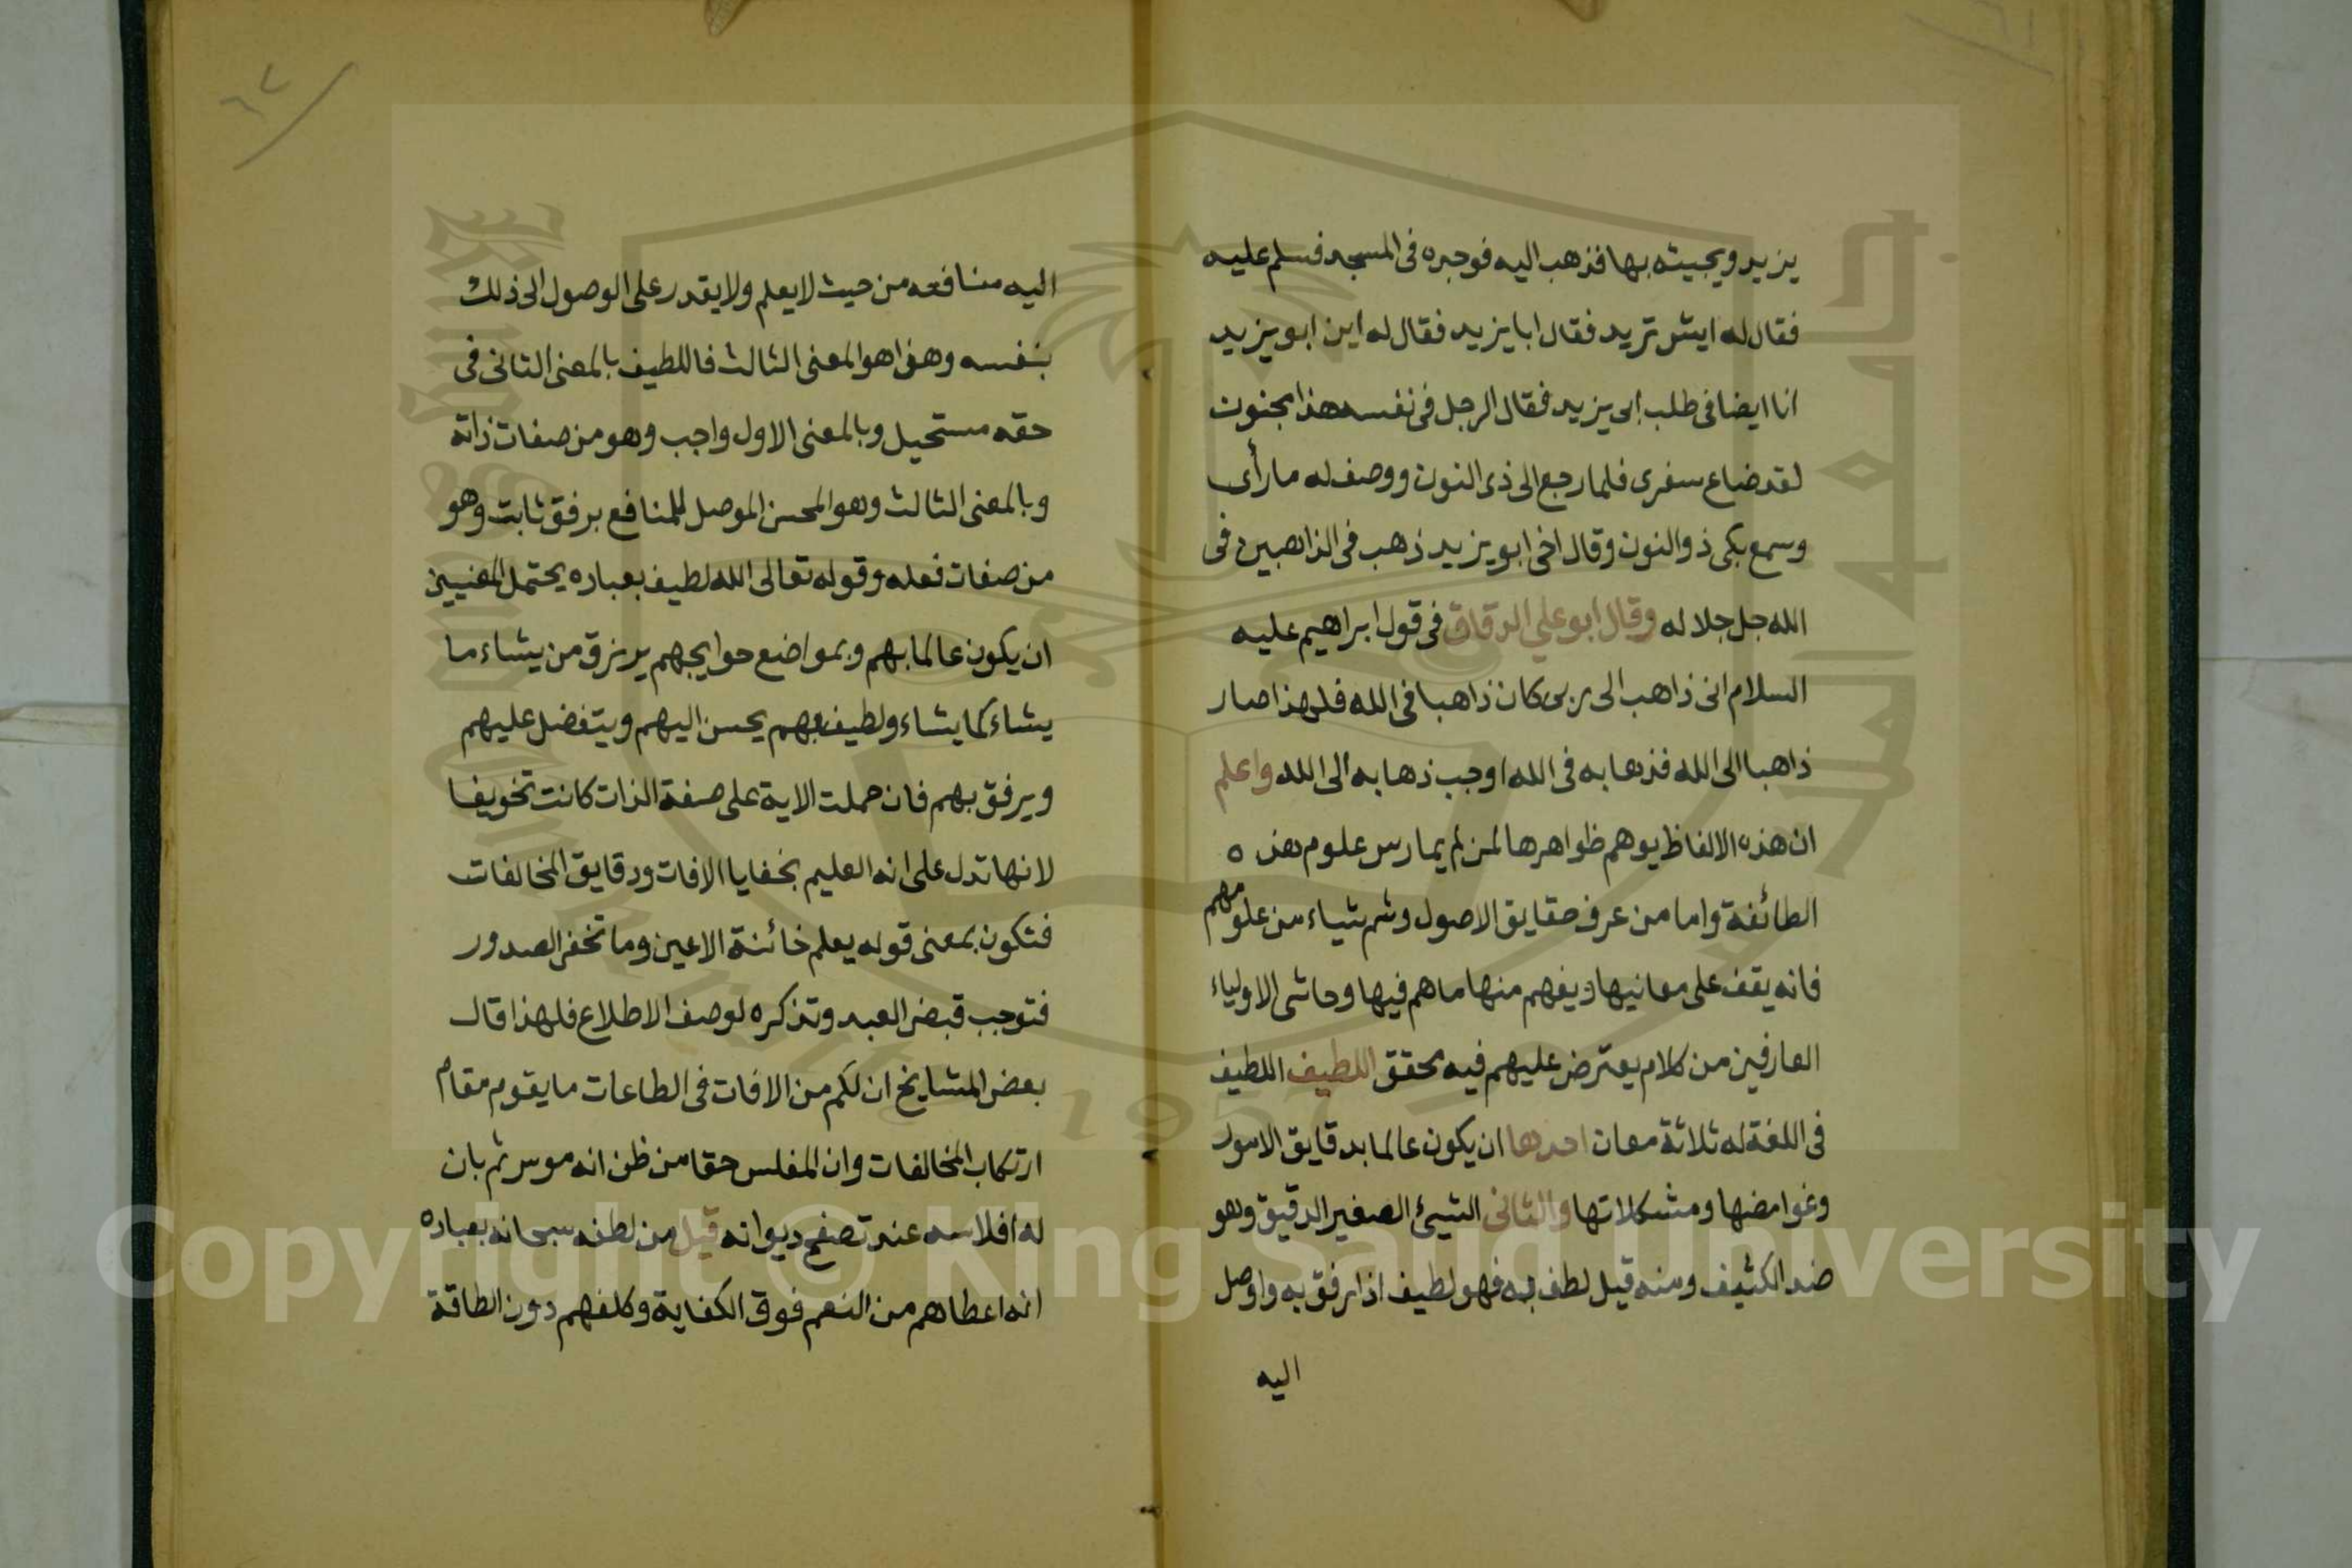 ٦١
يزيد ويجيئه بها فذهب اليه فوجده فى المسجد فسلم عليه
فقال له ايش تريد فقال ابا يزيد فقال له اين ابو يزيد
انا ايضا فى طلب ابى يزيد فقال الرجل فى نفسه هذا مجنون
لقد ضاع سفرى فلما رجع الى ذى النون ووصف له ما رأى
وسمع بكى ذو النون وقال اخى ابو يزيد ذهب فى الذاهبين فى
الله جل جلاله وقال ابو علي الدقاق فى قول ابراهيم عليه
السلام انى ذاهب الى ربى كان ذاهبا فى الله فلهذا صار
ذاهبا الى الله فذهابه فى الله اوجب ذهابه الى الله واعلم
ان هذه الالفاظ يوهم ظواهرها لمن لم يمارس علوم هذه
الطائفة واما من عرف حقايق الاصول وشم شياء من علومهم
فانه يقف على معانيها ويفهم منها ما هم فيها وحاشى الاولياء
العارفين من كلام يعترض عليهم فيه محقق اللطيف اللطيف
فى اللغة له ثلاثة معان احدها ان يكون عالما بدقايق الامور
وغوامضها ومشكلاتها والثانى الشيئ الصغير الدقيق وهو
ضد الكثيف ومنه قيل لطف به فهو لطيف اذا رفق به واوصل
اليه
٦٢
اليه منافعه من حيث لا يعلم ولا يقدر على الوصول الى ذلك
بنفسه وهذا هو المعنى الثالث فاللطيف بالمعنى الثانى فى
حقه مستحيل وبالمعنى الاول واجب وهو من صفات ذاته
وبالمعنى الثالث وهو المحسن الموصل للمنافع برفق ثابت وهو
من صفات فعله وقوله تعالى الله لطيف بعباده يحتمل المعنيين
ان يكون عالما بهم وبمواضع حوايجهم يرزق من يشاء ما
يشاء كما يشاء ولطيف بهم يحسن اليهم ويتفضل عليهم
ويرفق بهم فان حملت الاية على صفة الذات كانت تخويفا
لانها تدل على انه العليم بخفايا الافات ودقايق المخالفات
فتكون بمعنى قوله يعلم خائنة الاعين وما تخفى الصدور
فتوجب قبض العبد وتذكره لوصف الاطلاع فلهذا قال
بعض المشايخ ان لكم من الافات فى الطاعات ما يقوم مقام
ارتكاب المخالفات وان المفلس حقا من ظن انه موسر ثم بان
له افلاسه عند تصفح ديوانه قيل من لطفه سبحانه بعباده
انه اعطاهم من النعم فوق الكفاية وكلفهم دون الطاقة
Copyright © King Saud University
1957